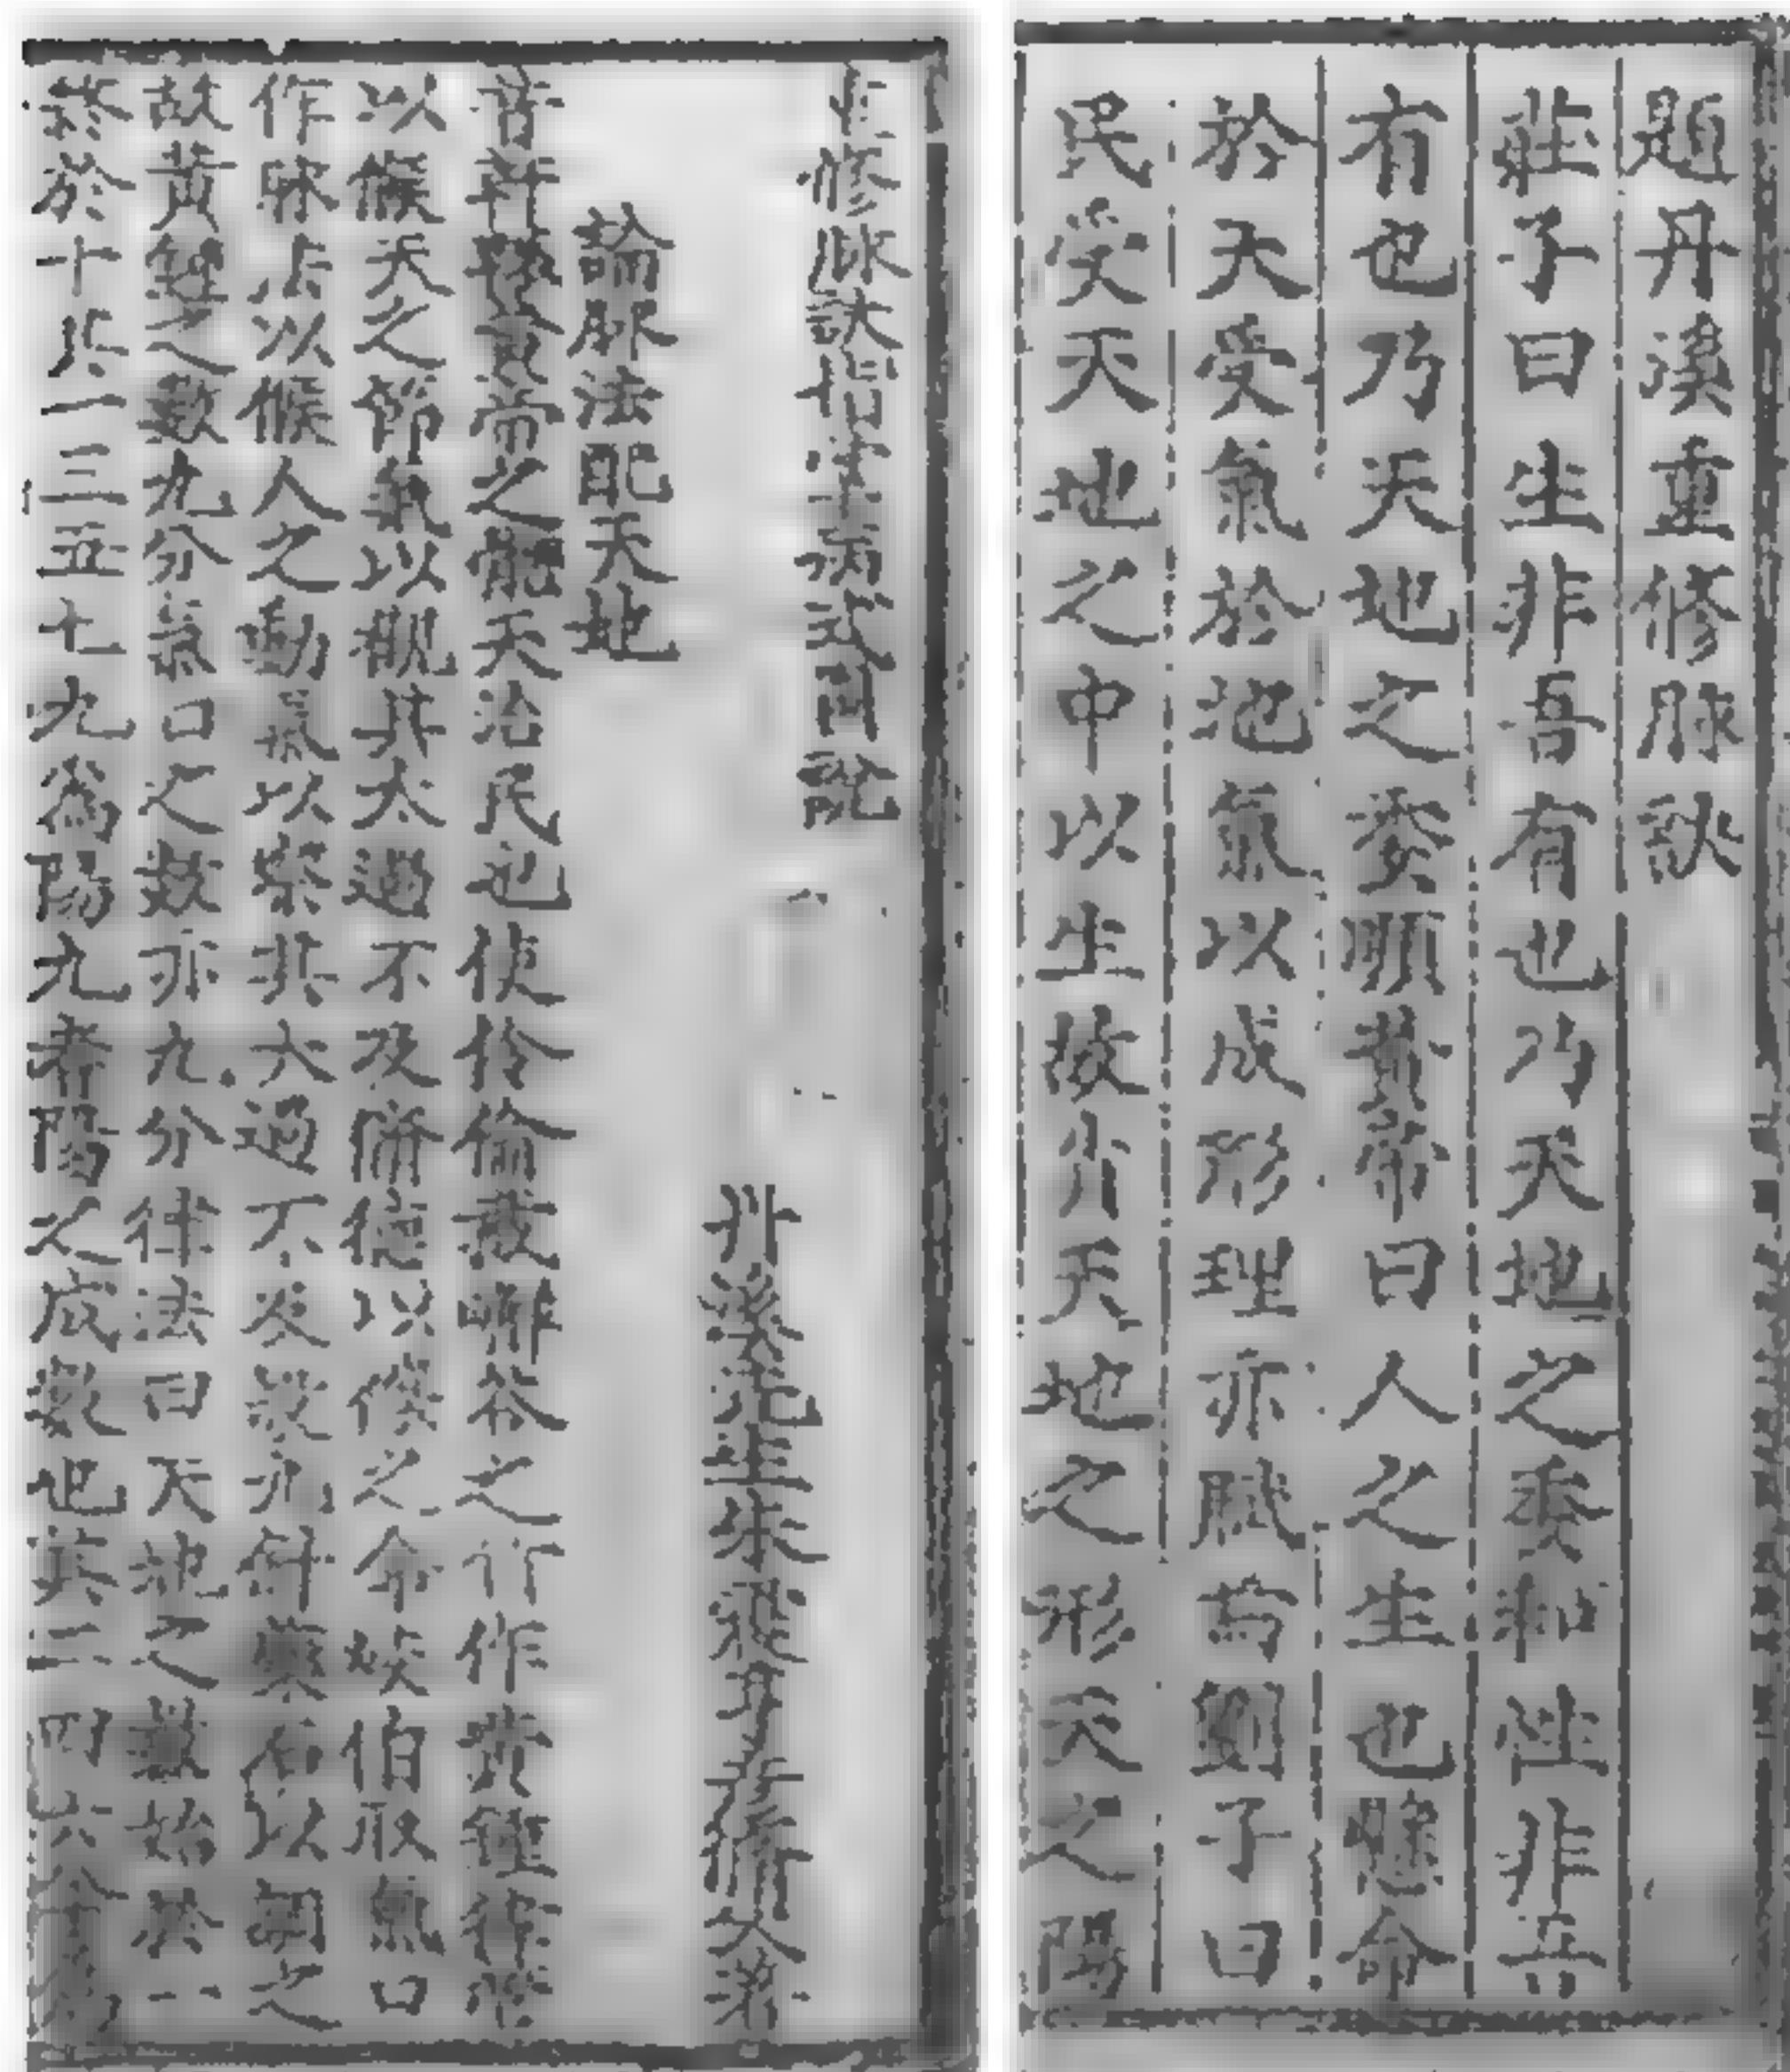 題丹溪重修脉訣
莊子曰生非吾有也乃天地之委和性非吾
有也乃天地之委順黃帝曰人之生也懸命
於天受氣於地氣以成形理亦賦焉劉子曰
民受天地之中以生故肖天地之形天之陽
重修脉訣指掌病式圖說
丹溪先生朱震亨彥脩父著
論脉法配天地
昔軒轅黃帝之體天治民也使伶倫截嶰谷之竹作黃鍾律管
以候天之節氣以觀其太過不及脩德以候之命岐伯取氣口
作脉法以候人之動氣以察其太過不及設九針藥石以調之
故黃鍾之數九分氣口之數亦九分律法曰天地之數始於一
終於十其一三五七九為陽九者陽之成數也其二四六八十為